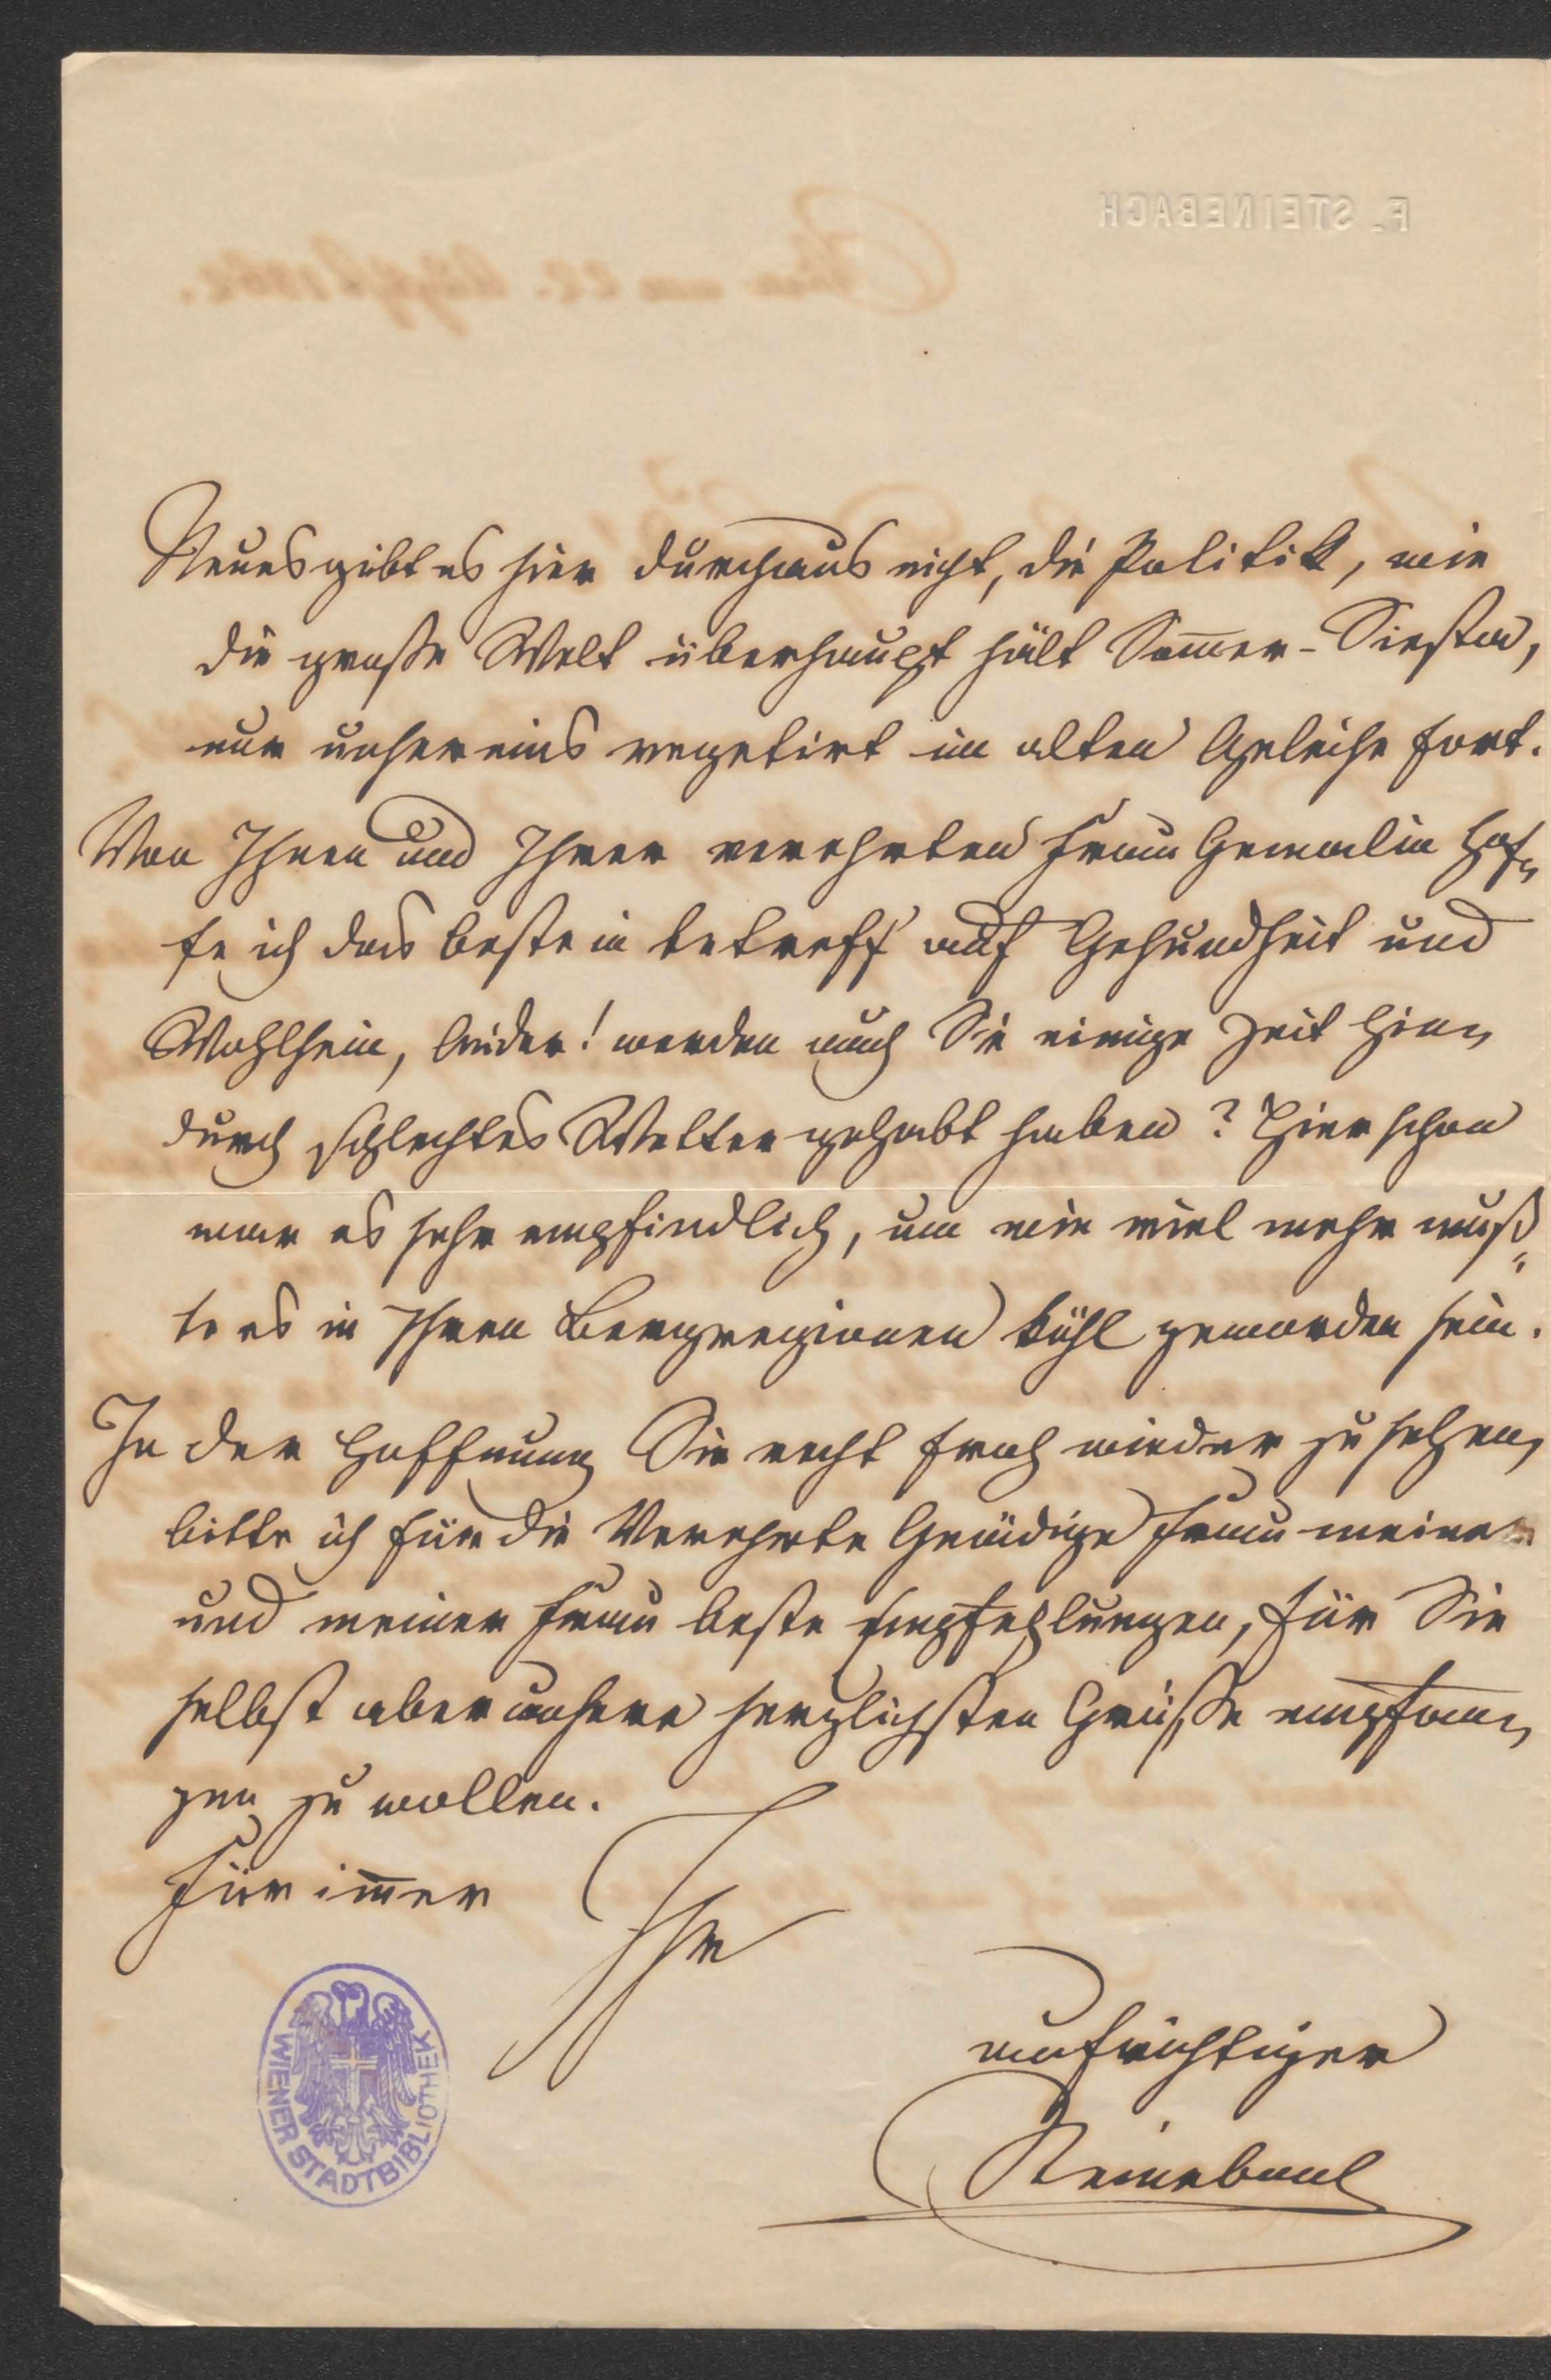 F. STEINEBACH
Neues gibt es hier durchaus nicht, die Politik, wie
die große Welt überhaupt hält Som̅er-Siesta,
nur unsereins vegetirt im alten Geleise fort.
Von Ihnen und Ihrer verehrten Frau Gemalin hof„
fe ich das beste in betreff auf Gesundheit und
Wohlsein, leider! werden auch Sie einige Zeit hin„
durch schlechtes Wetter gehabt haben? Hier schon
war es sehr empfindlich, um wie viel mehr muß„
te es in Ihren Bergregionen kühl geworden sein.
In der Hoffnung Sie recht froh wieder zu sehen,
bitte ich für die Verehrte Gnädige Frau meine
und meiner Frau beste Empfehlungen, für Sie
selbst aber unsere herzlichsten Grüsse empfan„
gen zu wollen.
Für im̅er
Ihr
aufrichtiger
Steinebach
WIENER STADTBIBLIOTHEK